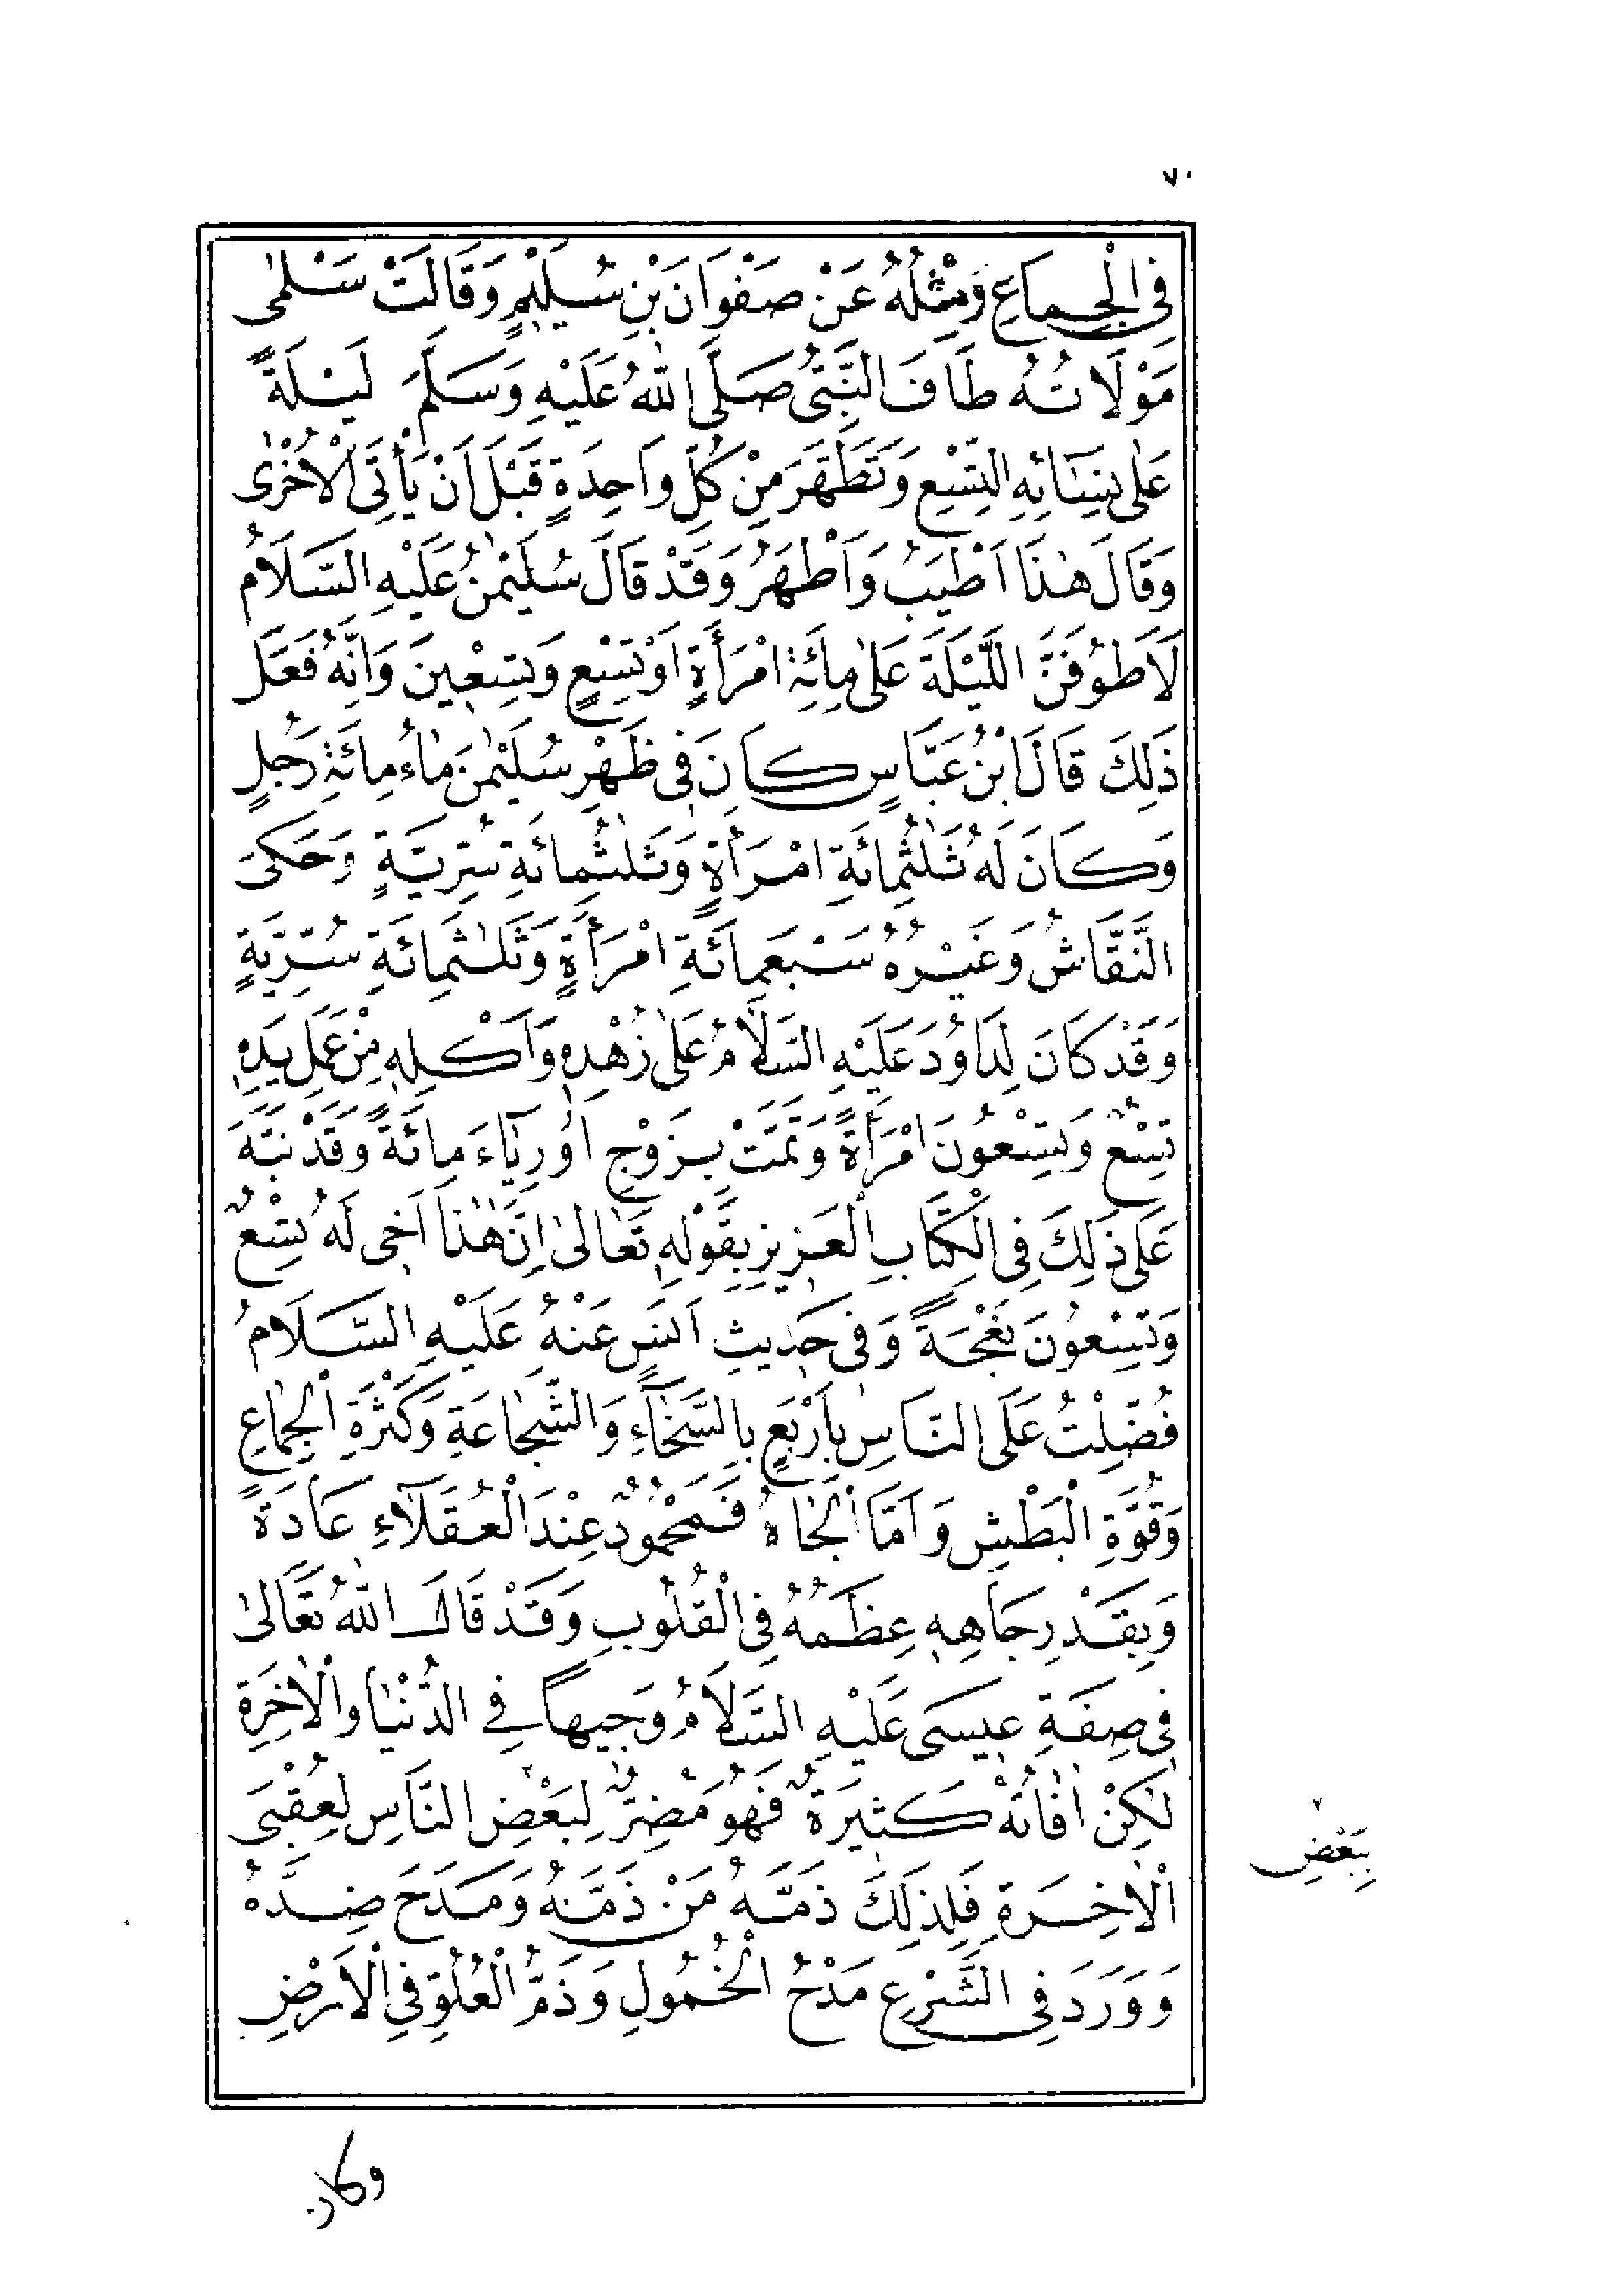 ٧٠
فِى الْجِمَاعِ وَمِثْلُهُ عَنْ صَفْوَانَ بْنِ سُلَيْمٍ وَقَالَتْ سَلْمٰى
مَوْلَاتُهُ طَافَ النَّبِىُّ صَلَّى اللهُ عَلَيْهِ وَسَلَّمَ لَيْلَةً
عَلٰى نِسَائِهِ التِّسْعِ وَتَطَهَّرَ مِنْ كُلِّ وَاحِدَةٍ قَبْلَ اَنْ يَأْتِىَ الْاُخْرٰى
وَقَالَ هٰذَا اَطْيَبُ وَاَطْهَرُ وَقَدْ قَالَ سُلَيْمٰنُ عَلَيْهِ السَّلَامُ
لَاَطُوفَنَّ اللَّيْلَةَ عَلٰى مِائَةِ امْرَأَةٍ اَوْ تِسْعٍ وَتِسْعِينَ وَاَنَّهُ فَعَلَ
ذٰلِكَ قَالَ ابْنُ عَبَّاسٍ كَانَ فِى ظَهْرِ سُلَيْمٰنَ مَاءُ مِائَةِ رَجُلٍ
وَكَانَ لَهُ ثَلٰثُمِائَةِ امْرَأَةٍ وَثَلٰثُمِائَةِ سُرِّيَّةٍ وَحَكٰىَ
النَّقَّاشُ وَغَيْرُهُ سَبْعَمِائَةِ امْرَأَةٍ وَثَلٰثَمِائَةِ سُرِّيَّةٍ
وَقَدْ كَانَ لِدَاوُدَ عَلَيْهِ السَّلَامُ عَلٰى زُهْدِهِ وَاَكْلِهِ مِنْ عَمَلِ يَدِهِ
تِسْعٌ وَتِسْعُونَ امْرَأَةً وَتَمَّتْ بِزَوْجِ اُورِيَاءَ مِائَةً وَقَدْ نَبَّهَ
عَلَى ذٰلِكَ فِى الْكِتَابِ الْعَزِيزِ بِقَوْلِهِ تَعَالٰى اِنَّ هٰذَا اَخِى لَهُ تِسْعٌ
وَتِسْعُونَ نَعْجَةً وَفِى حَدِيثِ اَنَسٍ عَنْهُ عَلَيْهِ السَّلَامُ
فُضِّلْتُ عَلَى النَّاسِ بِاَرْبَعٍ بِالسَّخَاءِ وَالشَّجَاعَةِ وَكَثْرَةِ الْجِمَاعِ
وَقُوَّةِ الْبَطْشِ وَاَمَّا الْجَاهُ فَمَحْمُودٌ عِنْدَ الْعُقَلَاءِ عَادَةً
وَبِقَدْرِ جَاهِهِ عِظَمُهُ فِى الْقُلُوبِ وَقَدْ قَالَ اللهُ تَعَالٰى
فِى صِفَةِ عِيسَى عَلَيْهِ السَّلَامُ وَجِيهاً فِى الدُّنْيَا وَالْاٰخِرَةِ
لٰكِنْ اٰفَاتُهُ كَثِيرَةٌ فَهُوَ مُضِرٌّ لِبَعْضِ النَّاسِ لِعُقْبَى
الْاٰخِرَةِ فَلِذٰلِكَ ذَمَّهُ مَنْ ذَمَّهُ وَمَدَحَ ضِدَّهُ
وَوَرَدَ فِى الشَّرْعِ مَدْحُ الْخُمُولِ وَذَمُّ الْعُلُوِّ فِى الْاَرْضِ
بِبَعْضِ
وكان